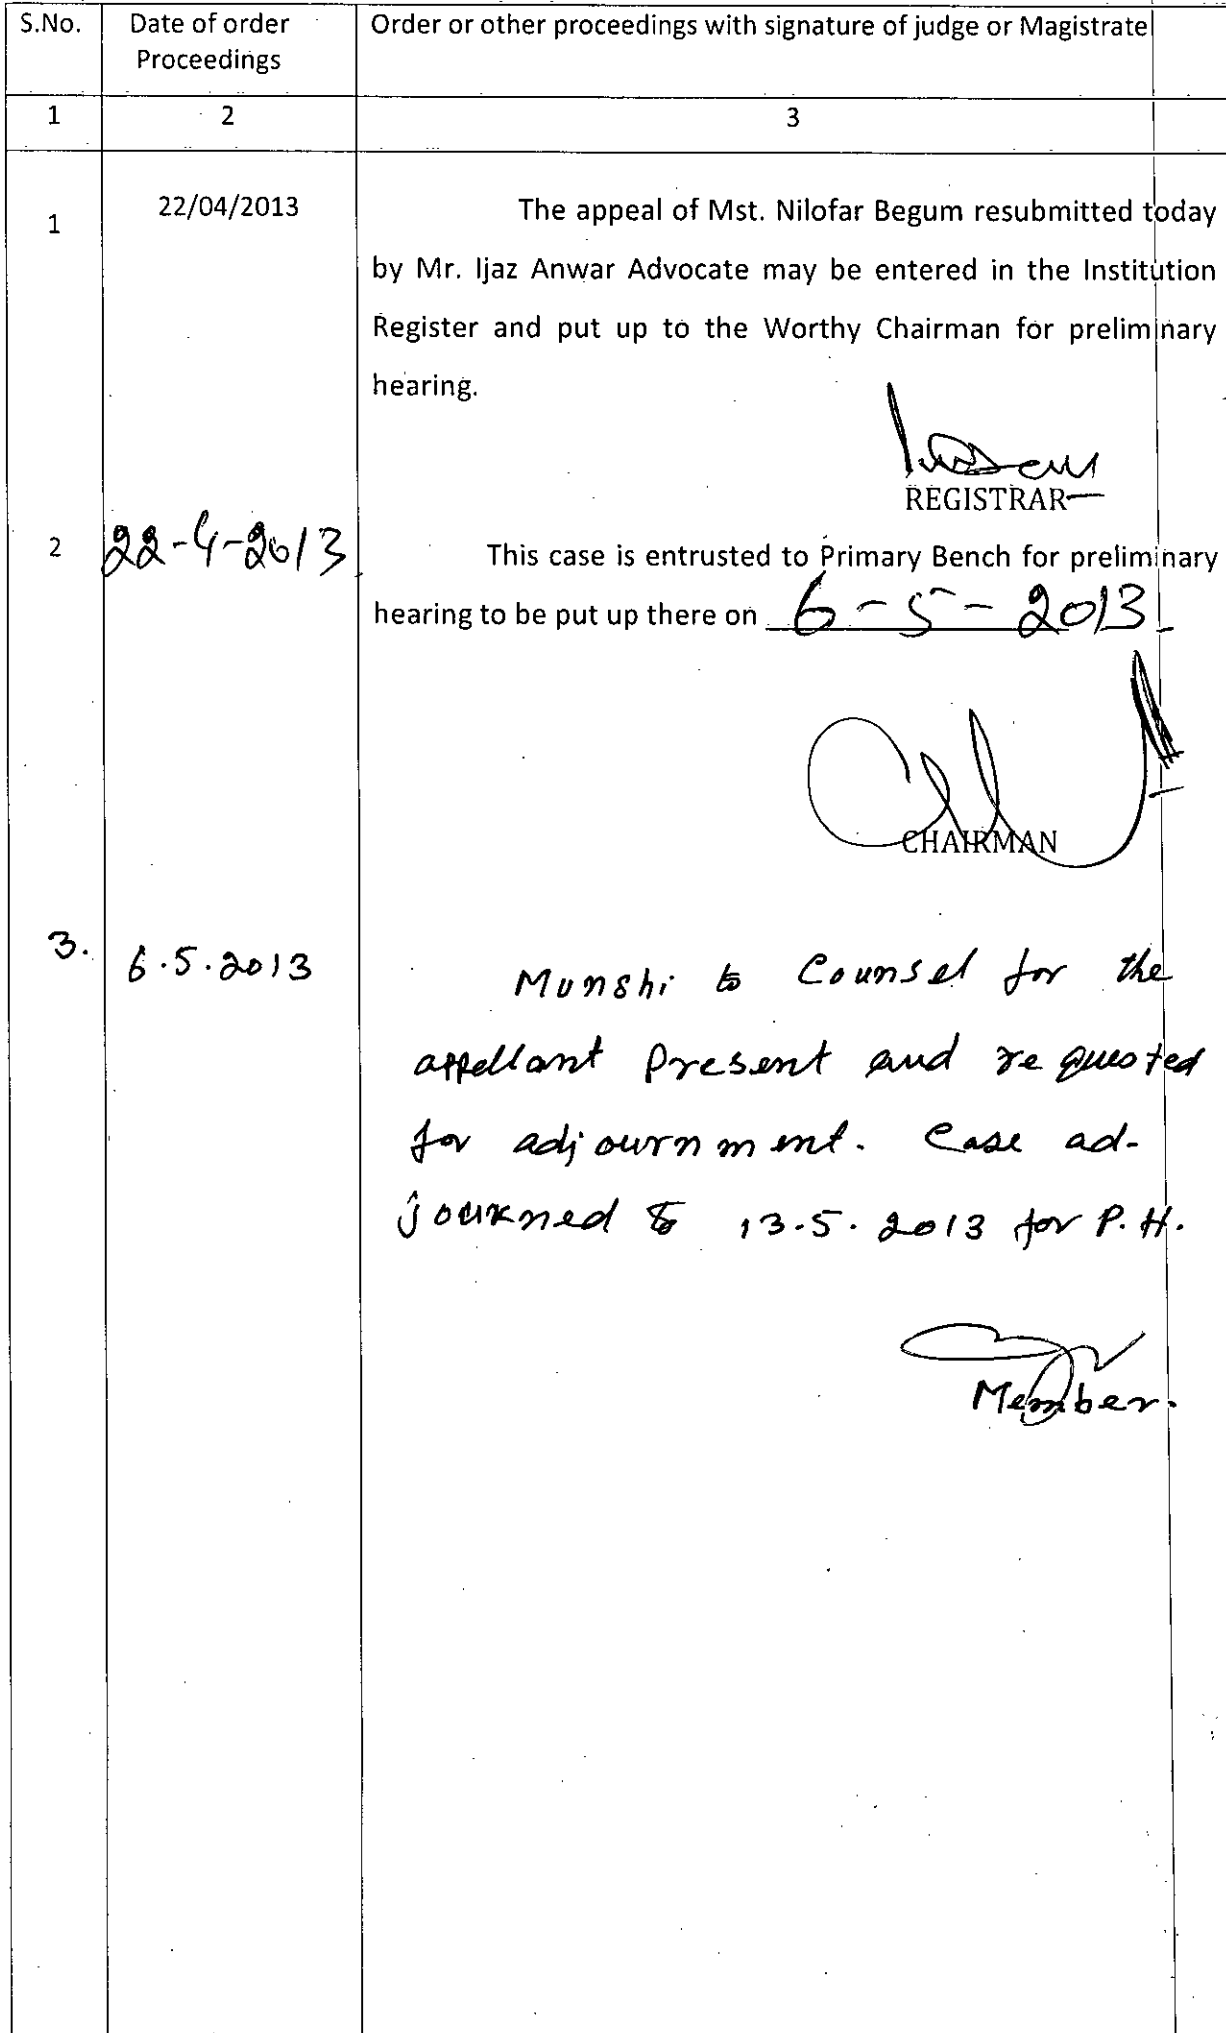 S.No.
Date of order
Proceedings
Order or other proceedings with signature of judge or Magistrate
1
2
3
1
22/04/2013
The appeal of Mst. Nilofar Begum resubmitted today
by Mr. Ijaz Anwar Advocate may be entered in the Institution
Register and put up to the Worthy Chairman for preliminary
hearing.
REGISTRAR
2
22-4-2013
This case is entrusted to Primary Bench for preliminary
hearing to be put up there on 6-5-2013
CHAIRMAN
3.
6.5.2013
Munshi to Counsel for the
appellant Present and requested
for adjournment. Case ad-
journed to 13.5.2013 for P.H.
Member.